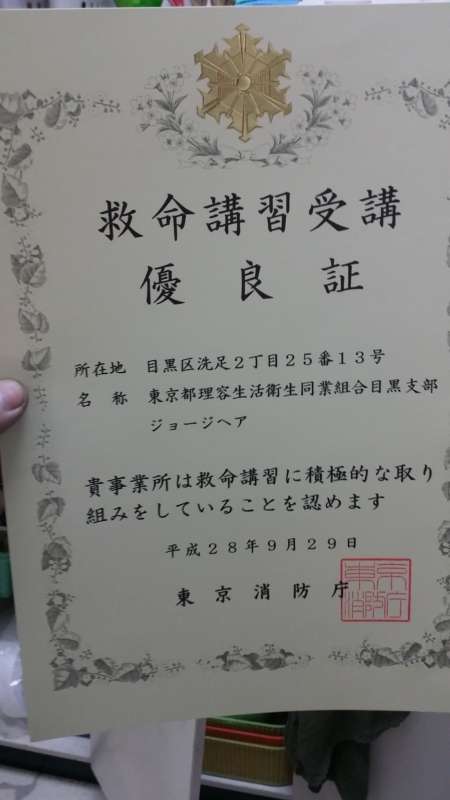 救命講習受講
優良証
所在地 目黒区洗足２丁目２５番１３号
名称 東京都理容生活衛生同業組合目黒支部
ジョージヘア
貴事業所は救命講習に積極的な取り
組みをしていることを認めます
平成２８年９月２９日
東京消防庁
東京消防庁